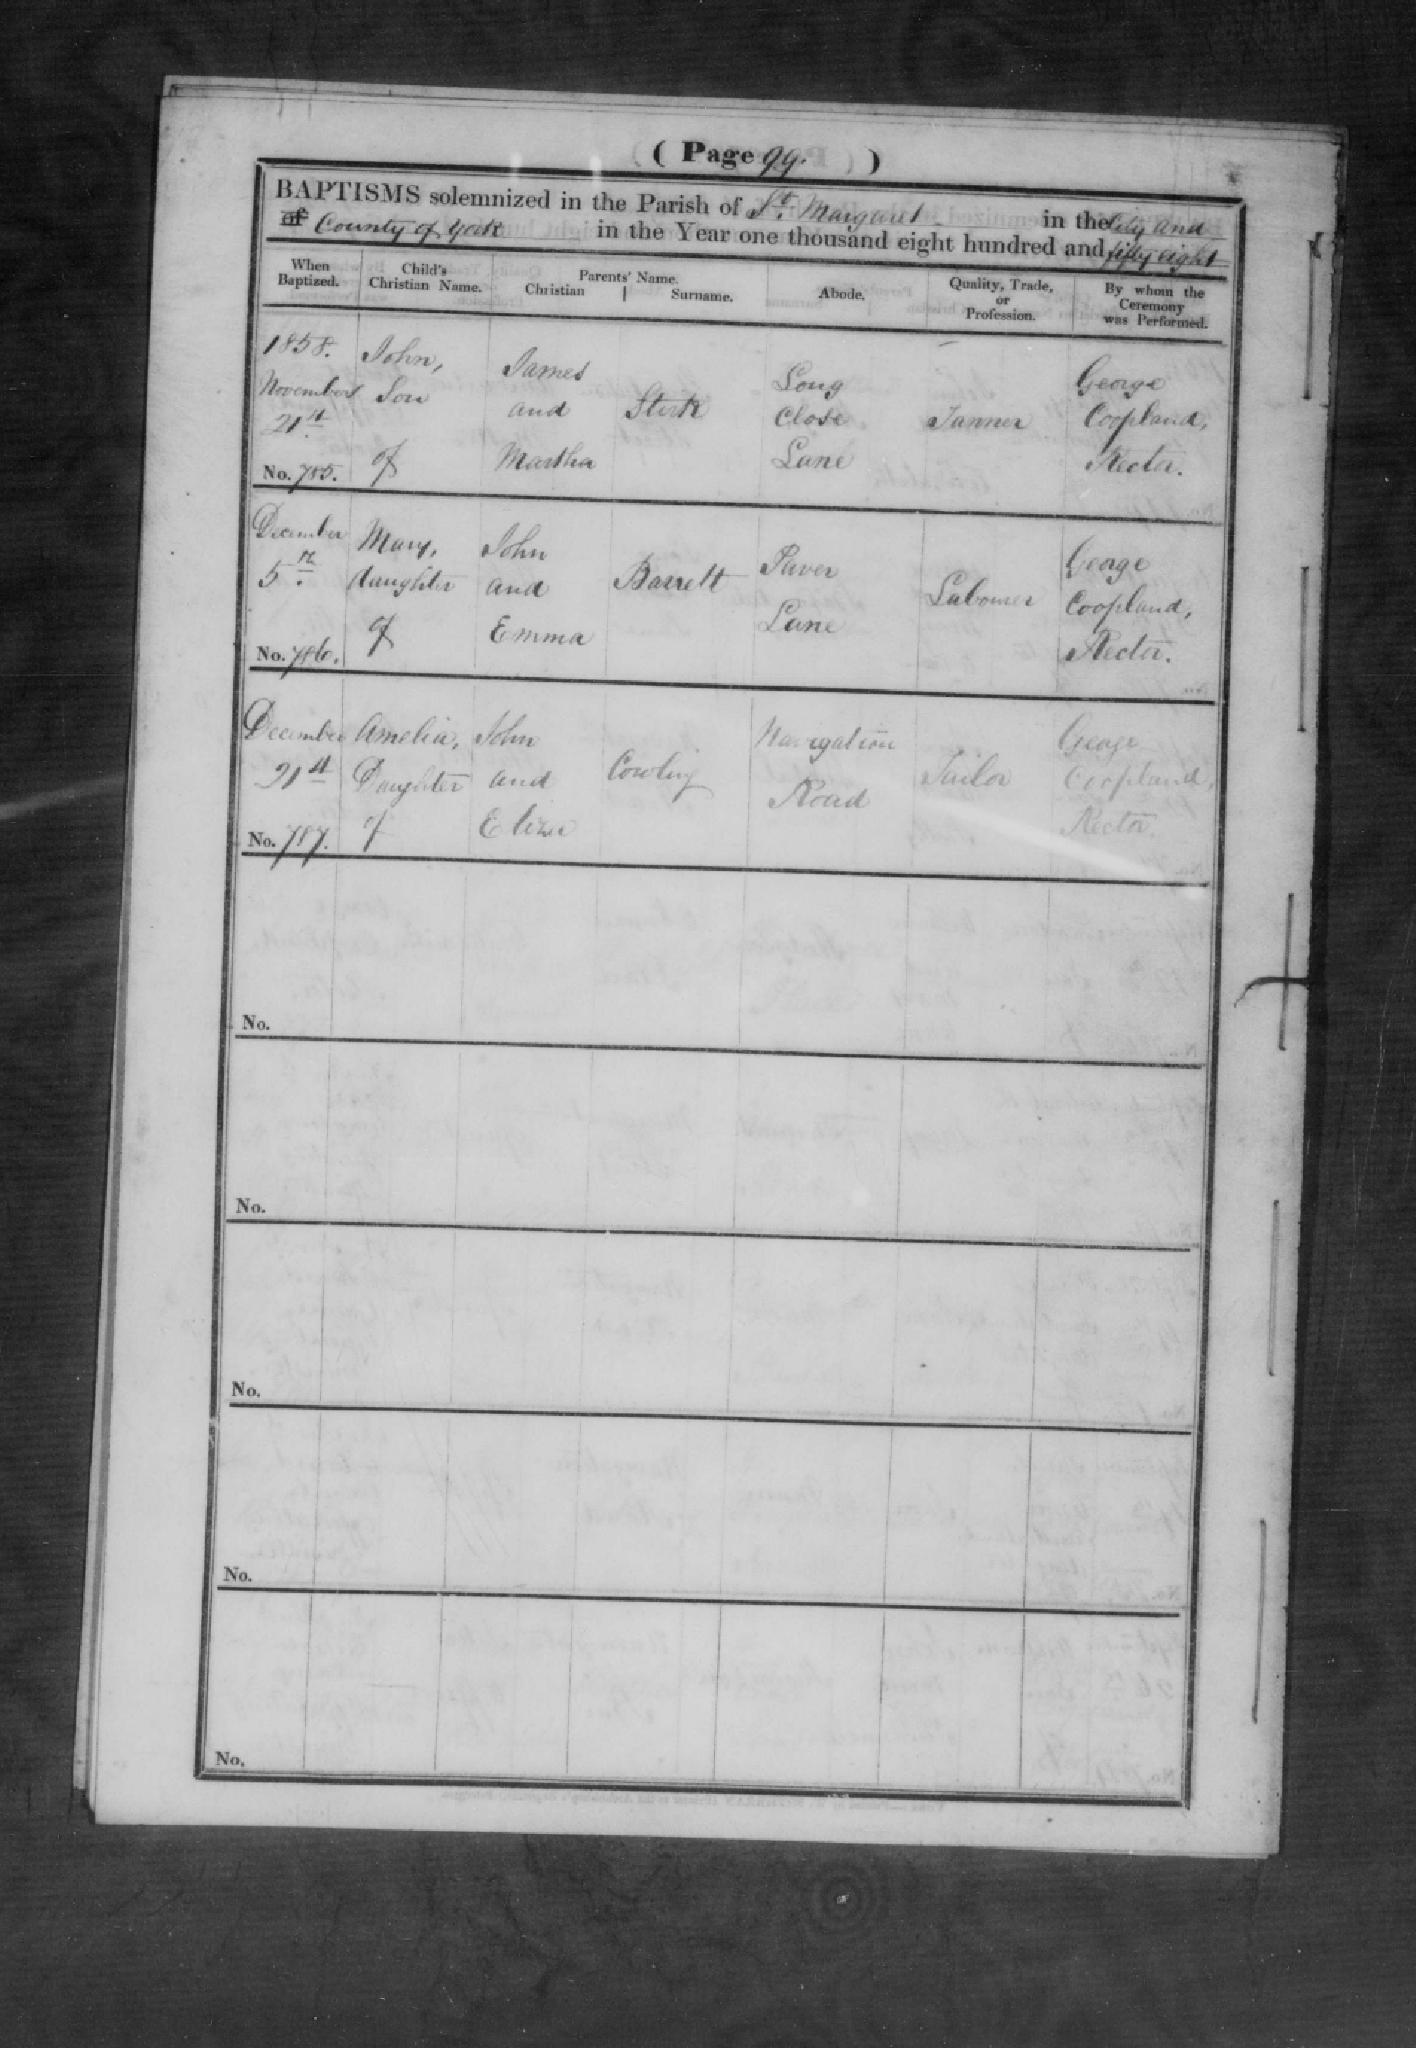 ( Page 99. )
BAPTISMS solemnized in the Parish of St. Margaret in the City and
of County of York in the Year one thousand eight hundred and fifty eight
When Baptized. Child's Christian Name. Parents' Name. Christian Surname. Abode. Quality, Trade, or Profession. By whom the Ceremony was Performed.
1858. John, James Long George
November Son and Stirk Close Tanner Coopland,
21st of Martha Lane Rector.
No. 785.
December Mary, John Paver George
5th daughter and Barrett Lane Labourer Coopland,
of Emma Rector.
No. 786.
December Amelia, John Navigation George
21st Daughter and Cowling Road Tailor Coopland,
of Eliza Rector.
No. 787.
No.
No.
No.
No.
No.